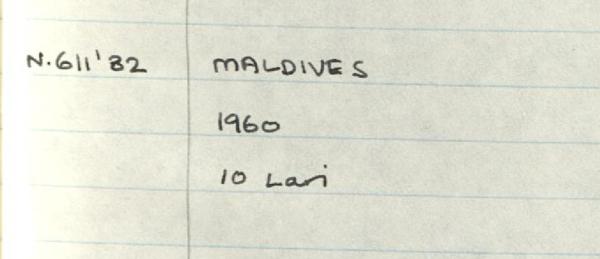 N.611'82 MALDIVES
1960
10 Lari